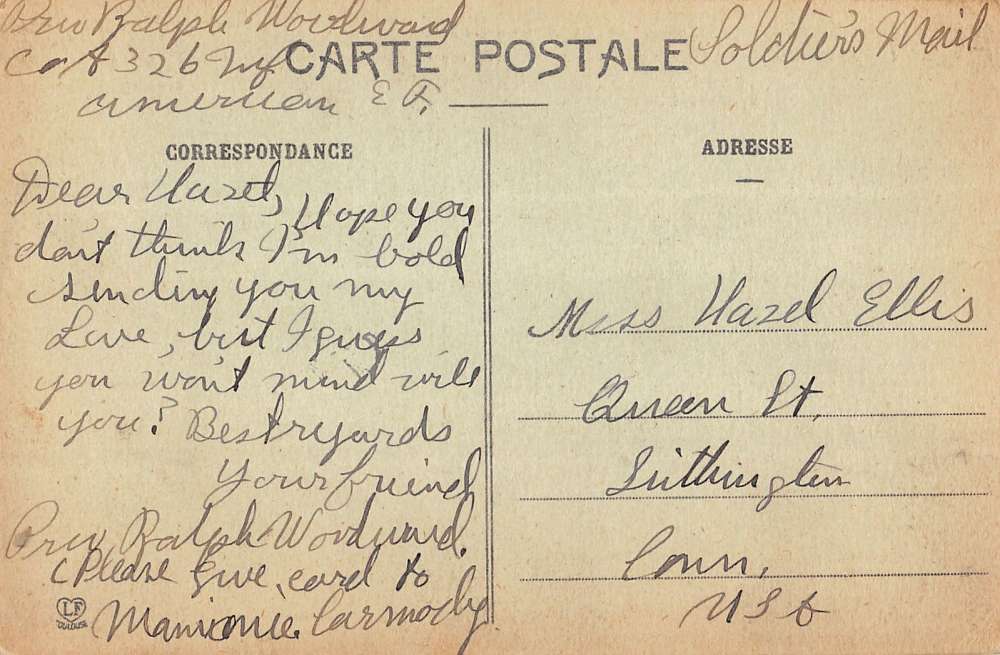 Priv Ralph Woodward
Co A 326 Inf
American E F.
Soldier's Mail
CARTE POSTALE
CORRESPONDANCE
Dear Hazel, Hope you
don't think I'm bold
sending you my
Love, but I guess
you won't mind will
you? Best regards
Your friend
Priv Ralph Woodward.
(Please Give card to
Carmody
LF
ADRESSE
Miss Hazel Ellis
Queen St.
Suthington
Conn.
USA